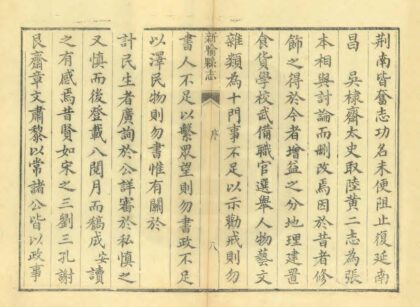 荆南皆奮志功名未便阻止復延南
昌　吳棣齋太史取陸黃二志為張
本相與討論而刪改焉因於昔者修
飾之得於今者增益之分地理建置
食貨學校武備職官選舉人物藝文
雜類為十門事不足以示勸戒則勿
新喻縣志
序
八
書人不足以繫眾望則勿書政不足
以澤民物則勿書惟有關於
計民生者廣詢於公詳審於私慎之
又慎而後登載八閱月而稿成安讀
之有感焉昔賢如宋之三劉三孔謝
艮齋章文肅黎以常諸公皆以政事